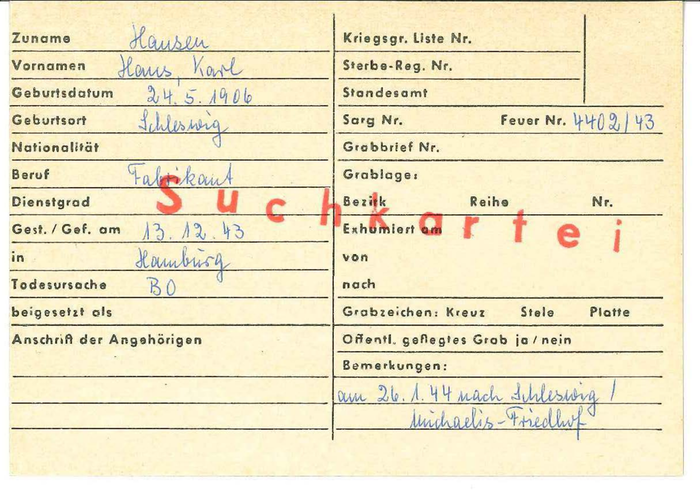 Zuname Hansen
Vornamen Hans, Karl
Geburtsdatum 24.5.1906
Geburtsort Schleswig
Nationalität
Beruf Fabrikant
Dienstgrad
Gest./Gef. am 13.12.43
in Hamburg
Todesursache BO
beigesetzt als
Anschrift der Angehörigen
Suchkartei
Kriegsgr. Liste Nr.
Sterbe-Reg. Nr.
Standesamt
Sarg Nr. Feuer Nr. 4402/43
Grabbrief Nr.
Grablage:
Bezirk Reihe Nr.
Exhumiert am
von
nach
Grabzeichen: Kreuz Stele Platte
Öffentl. gepflegtes Grab ja/nein
Bemerkungen:
am 26.1.44 nach Schleswig/
Michaelis-Friedhof